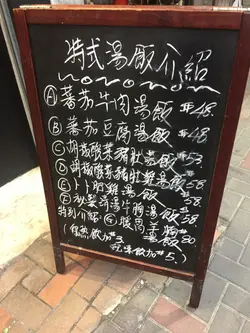 特式湯飯介紹
Ⓐ 蕃茄牛肉湯飯 $48.
Ⓑ 蕃茄豆腐湯飯 $48.
Ⓒ 胡椒酸菜豬肚湯飯 $53
Ⓓ 胡椒酸菜豬肚雞湯飯 58.
Ⓔ 卜卜蜆雞湯飯 $58.
Ⓕ 秘製清湯牛腩湯飯 $58.
特別介紹: ④
(熱飲加$3,
凍飲加$5.)